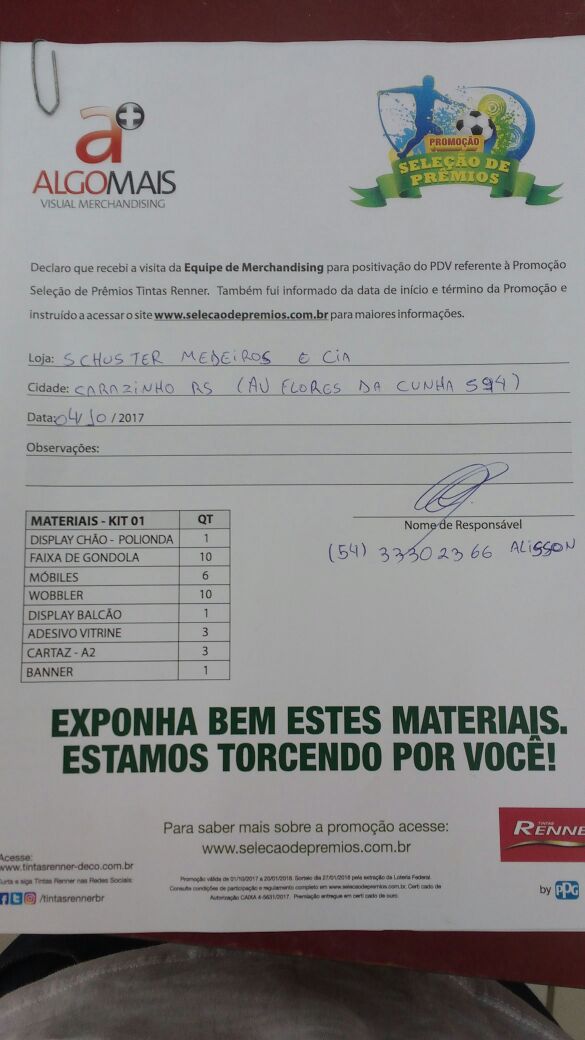 a+
ALGOMAIS
VISUAL MERCHANDISING
PROMOÇÃO
SELEÇÃO DE
PRÊMIOS
Declaro que recebi a visita da Equipe de Merchandising para positivação do PDV referente à Promoção
Seleção de Prêmios Tintas Renner. Também fui informado da data de início e término da Promoção e
instruído a acessar o site www.selecaodepremios.com.br para maiores informações.
Loja: SCHUSTER MEDEIROS E CIA
Cidade: CARAZINHO RS (AV FLORES DA CUNHA 594)
Data: 04/10 / 2017
Observações:
Nome de Responsável
(54) 33302366 ALISSON
MATERIAIS - KIT 01 QT
DISPLAY CHÃO - POLIONDA 1
FAIXA DE GONDOLA 10
MÓBILES 6
WOBBLER 10
DISPLAY BALCÃO 1
ADESIVO VITRINE 3
CARTAZ - A2 3
BANNER 1
EXPONHA BEM ESTES MATERIAIS.
ESTAMOS TORCENDO POR VOCÊ!
Para saber mais sobre a promoção acesse:
www.selecaodepremios.com.br
TINTAS
RENNE
Acesse:
www.tintasrenner-deco.com.br
Curta e siga Tintas Renner nas Redes Sociais:
/tintasrennerbr
Promoção válida de 01/10/2017 a 20/01/2018. Sorteio dia 27/01/2018 pela extração da Loteria Federal.
Consulte condições de participação e regulamento completo em www.selecaodepremios.com.br. Certi cado de
Autorização CAIXA 4-5631/2017. Premiação entregue em certi cado de ouro.
by PPG